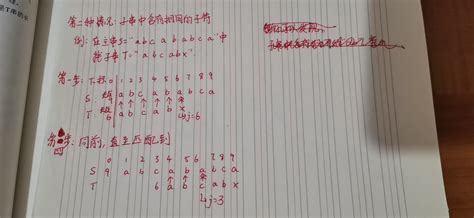 第二种情况：子串中含有相同的子符
例：在主串S="abcababca"中
找子串T="abcabx"
第一步：下标 0 1 2 3 4 5 6 7 8 9
S 9 a b c a b a b c a
T 6 a b c a b x
↳j=6
第四步：同前，直至匹配到
0 1 2 3 4 5 6 7 8 9
S 9 a b c a b a b c a
T 6 a b c a b x
↳j=3